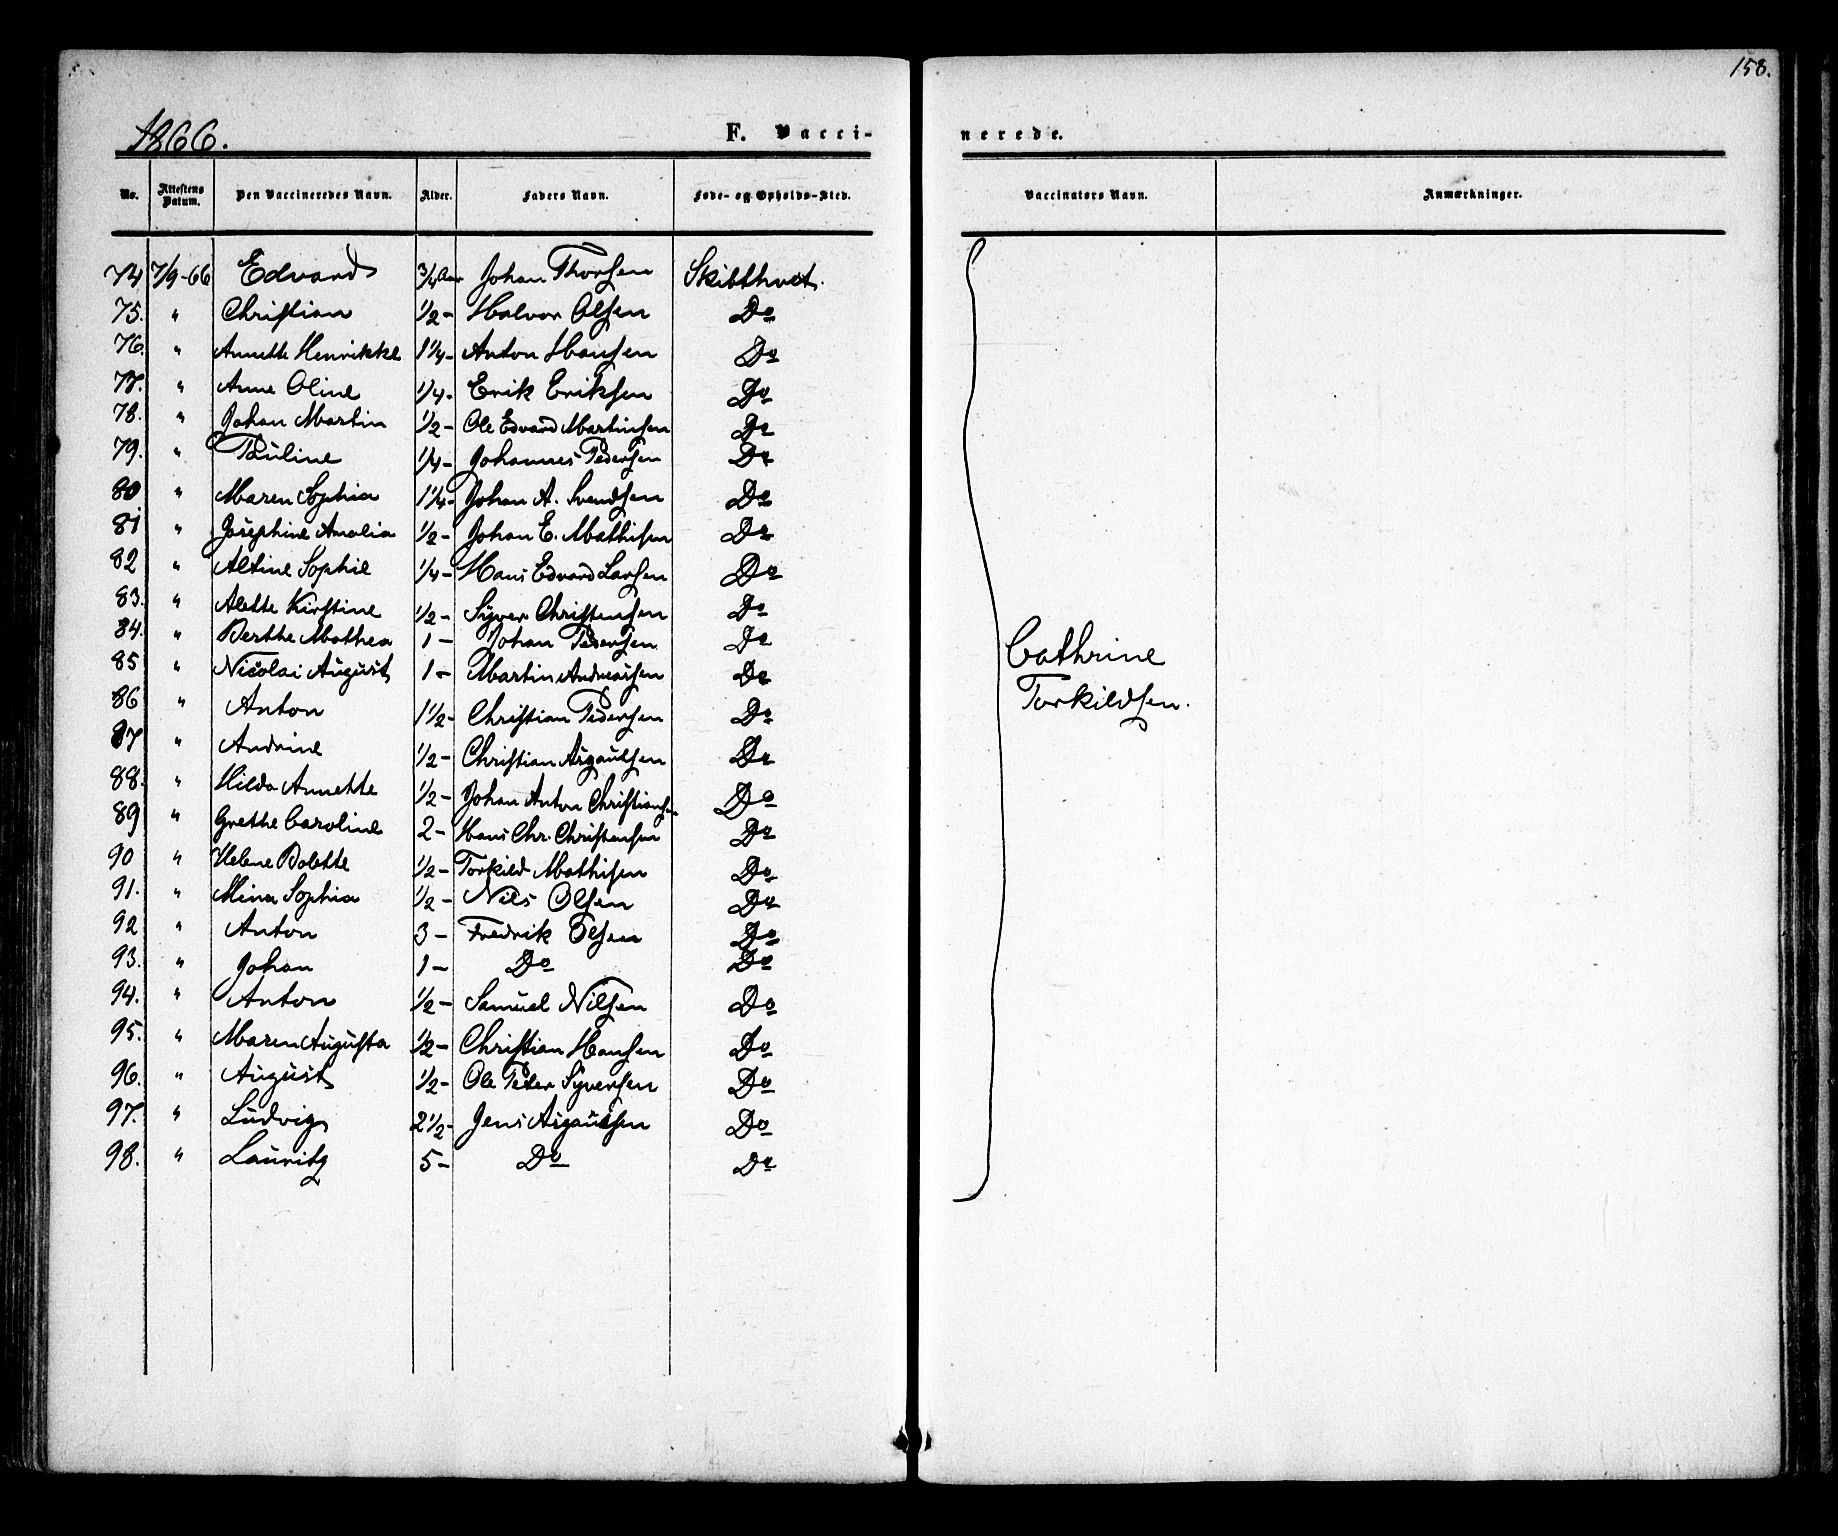 158.
1866.
F. Vaccinerede.
No. Attestens Datum. Den Vaccineredes Navn. Alder. Faders Navn. Føde- og Opholds-Sted. Vaccinators Navn. Anmærkninger.
74 7/9-66 Edvard 3/4 Aar Johan Thorsen Skibthvet.
75. " Christian 1/2 - Halvor Olsen Do
76. " Annette Henrikke 1 1/4 - Anton Hansen Do
77. " Anne Oline 1/4 - Erik Eriksen Do
78. " Johan Martin 1/2 - Ole Edvard Martinsen Do
79. " Pauline 1/4 - Johannes Pedersen Do
80 " Maren Sophia 1 1/4 - Johan A. Svendsen Do
81 " Josephine Amalia 1/2 - Johan E. Mathisen Do
82 " Altine Sophie 1/4 - Hans Edvard Larsen Do
83. " Alette Kirstine 1/2 - Syver Christensen Do
84. " Berthe Mathea 1 - Johan Pedersen Do
85 " Nicolai August 1 - Martin Andreasen Do
86 " Anton 1 1/2 - Christian Pedersen Do
87 " Andrine 1/2 - Christian Asgautsen Do
88. " Hilda Annette 1/2 - Johan Anton Christiansen Do
89 " Grethe Caroline 2 - Hans Chr. Christensen Do
90 " Helene Bolette 1/2 - Torkild Mathisen Do
91. " Mina Sophia 1/2 - Nils Olsen Do
92 " Anton 3 - Fredrik Olsen Do
93. " Johan 1 - Do Do
94. " Anton 1/2 - Samuel Nilsen Do
95. " Maren Augusta 1/2 - Christian Hansen Do
96. " August 1/2 - Ole Peter Syversen Do
97. " Ludvig 2 1/2 - Jens Asgautsen Do
98. " Lauritz 5 - Do Do
Cathrine
Torkildsen.